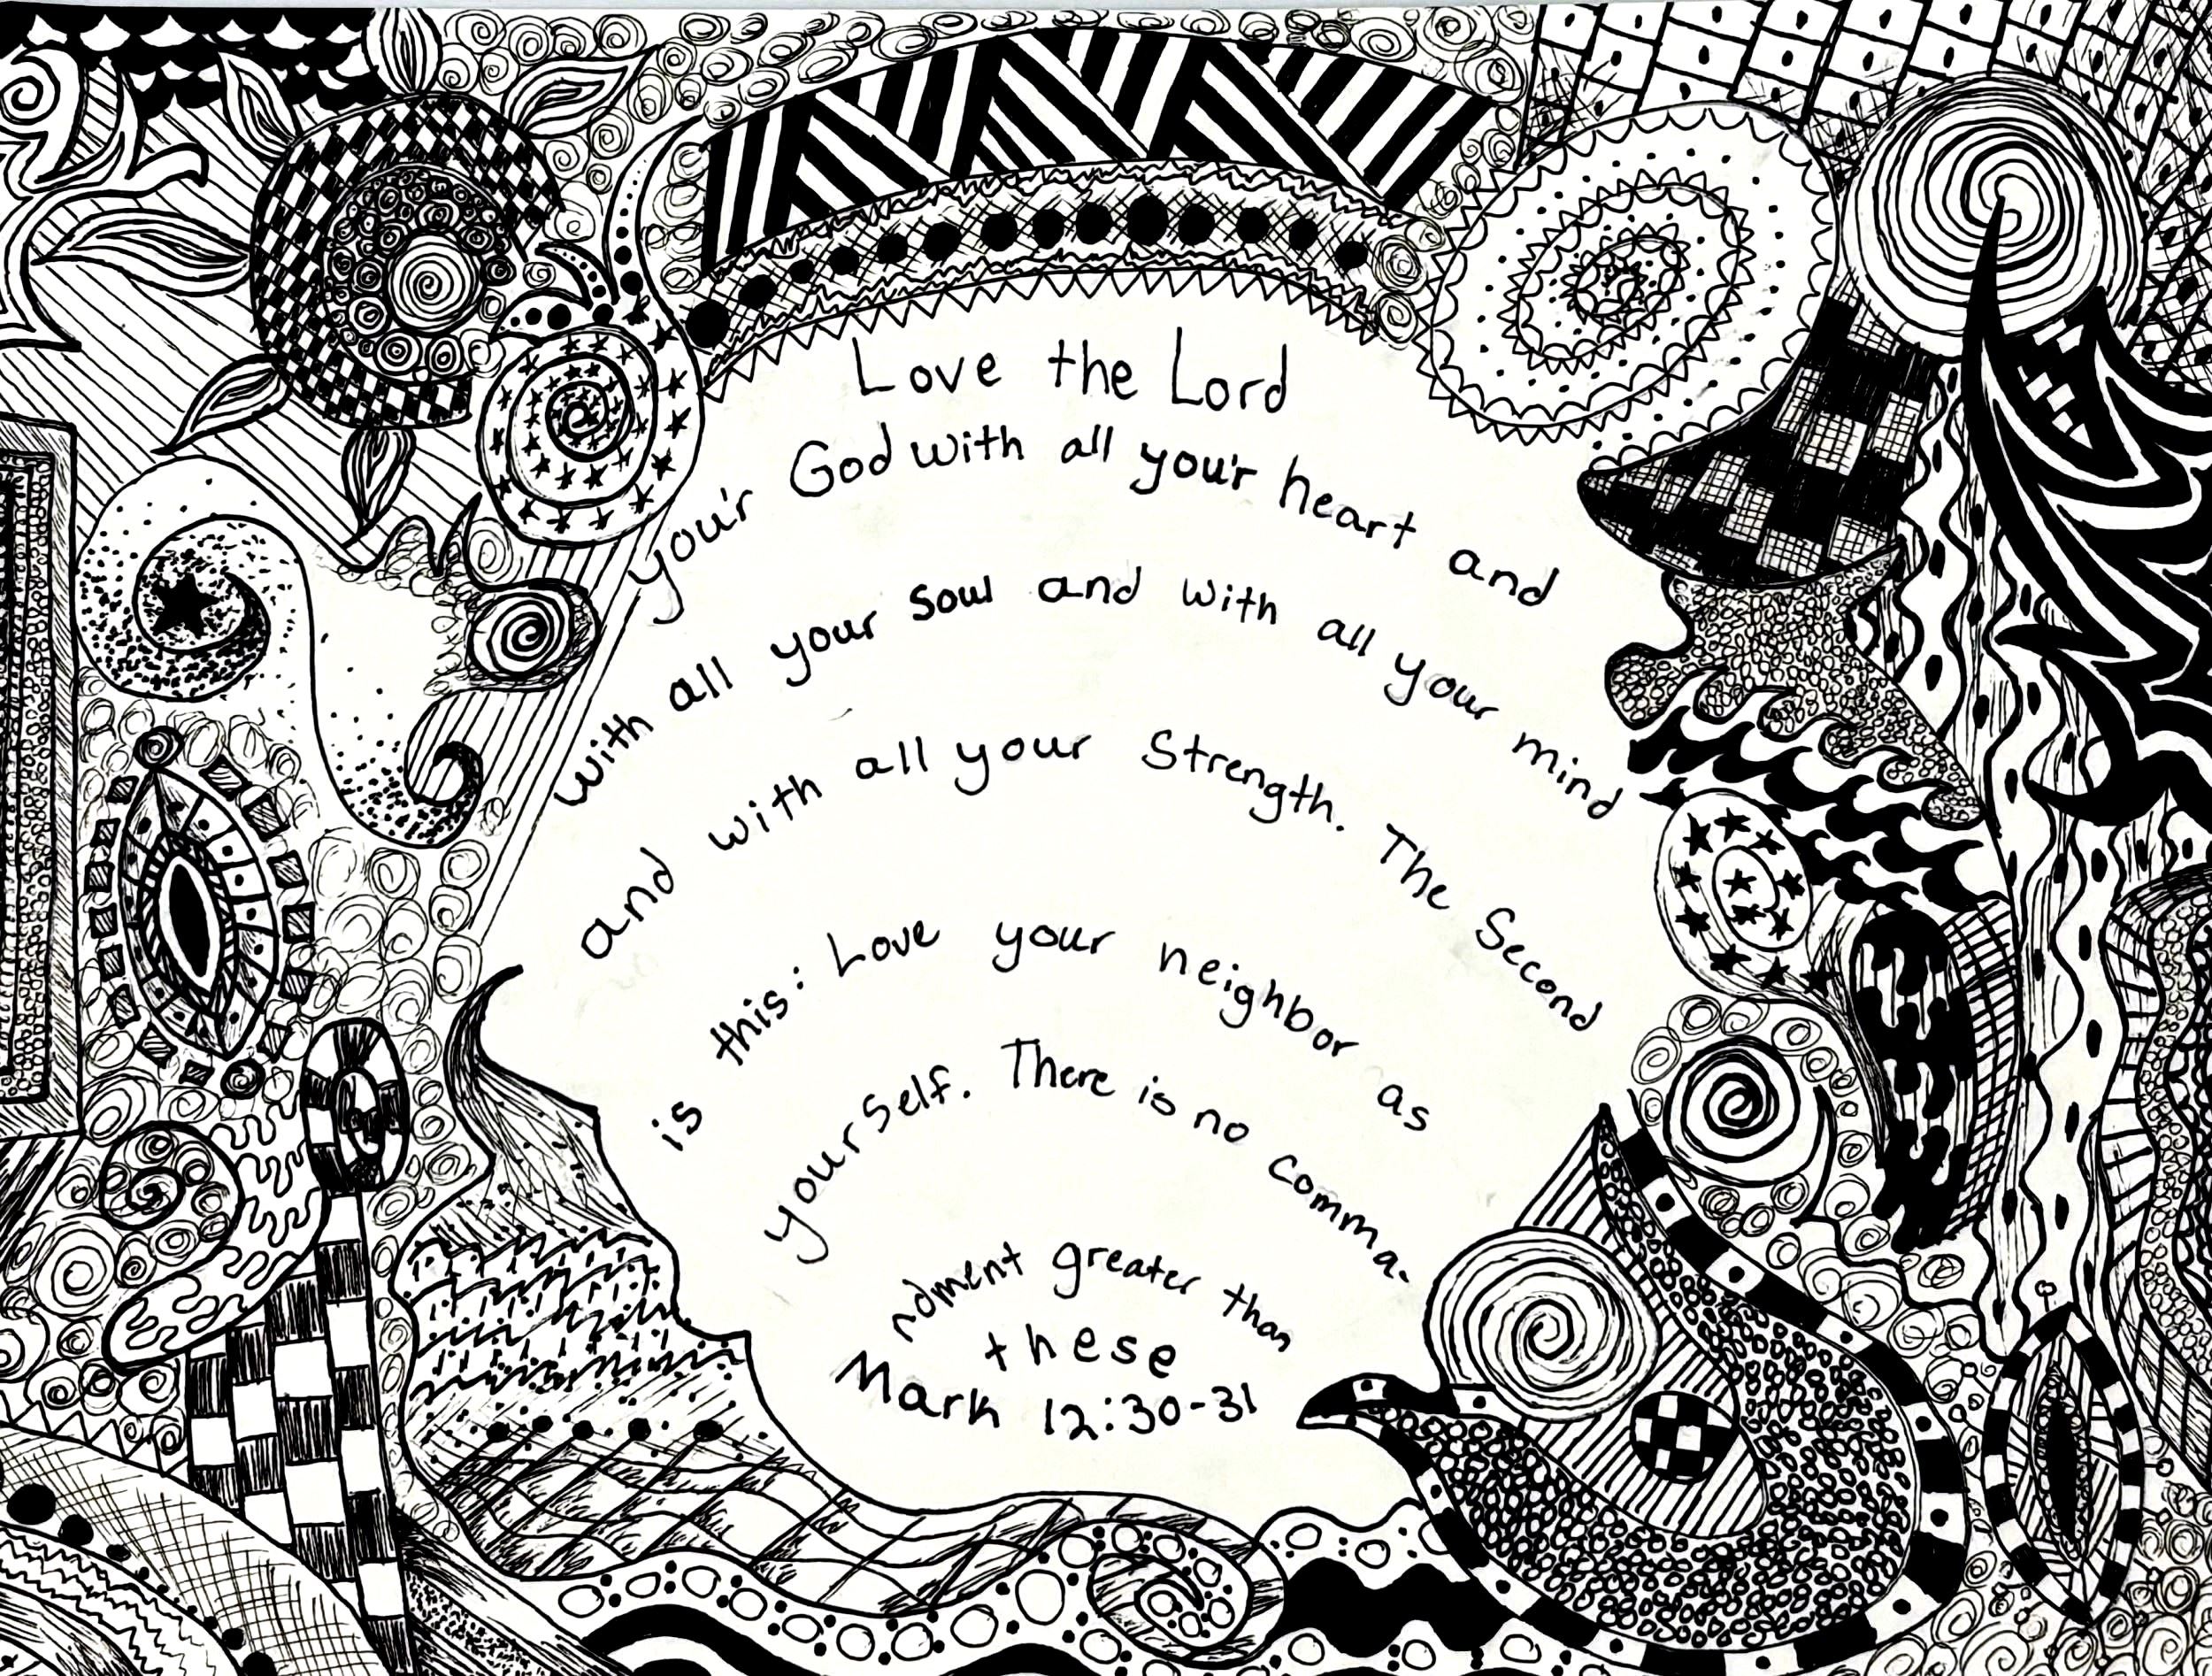 Love the Lord
you'r God with all you'r heart and
with all your soul and with all your mind
and with all your Strength. The Second
is this: Love your neighbor as
yourself. There is no comma-
ndment greater than
these
Mark 12:30-31